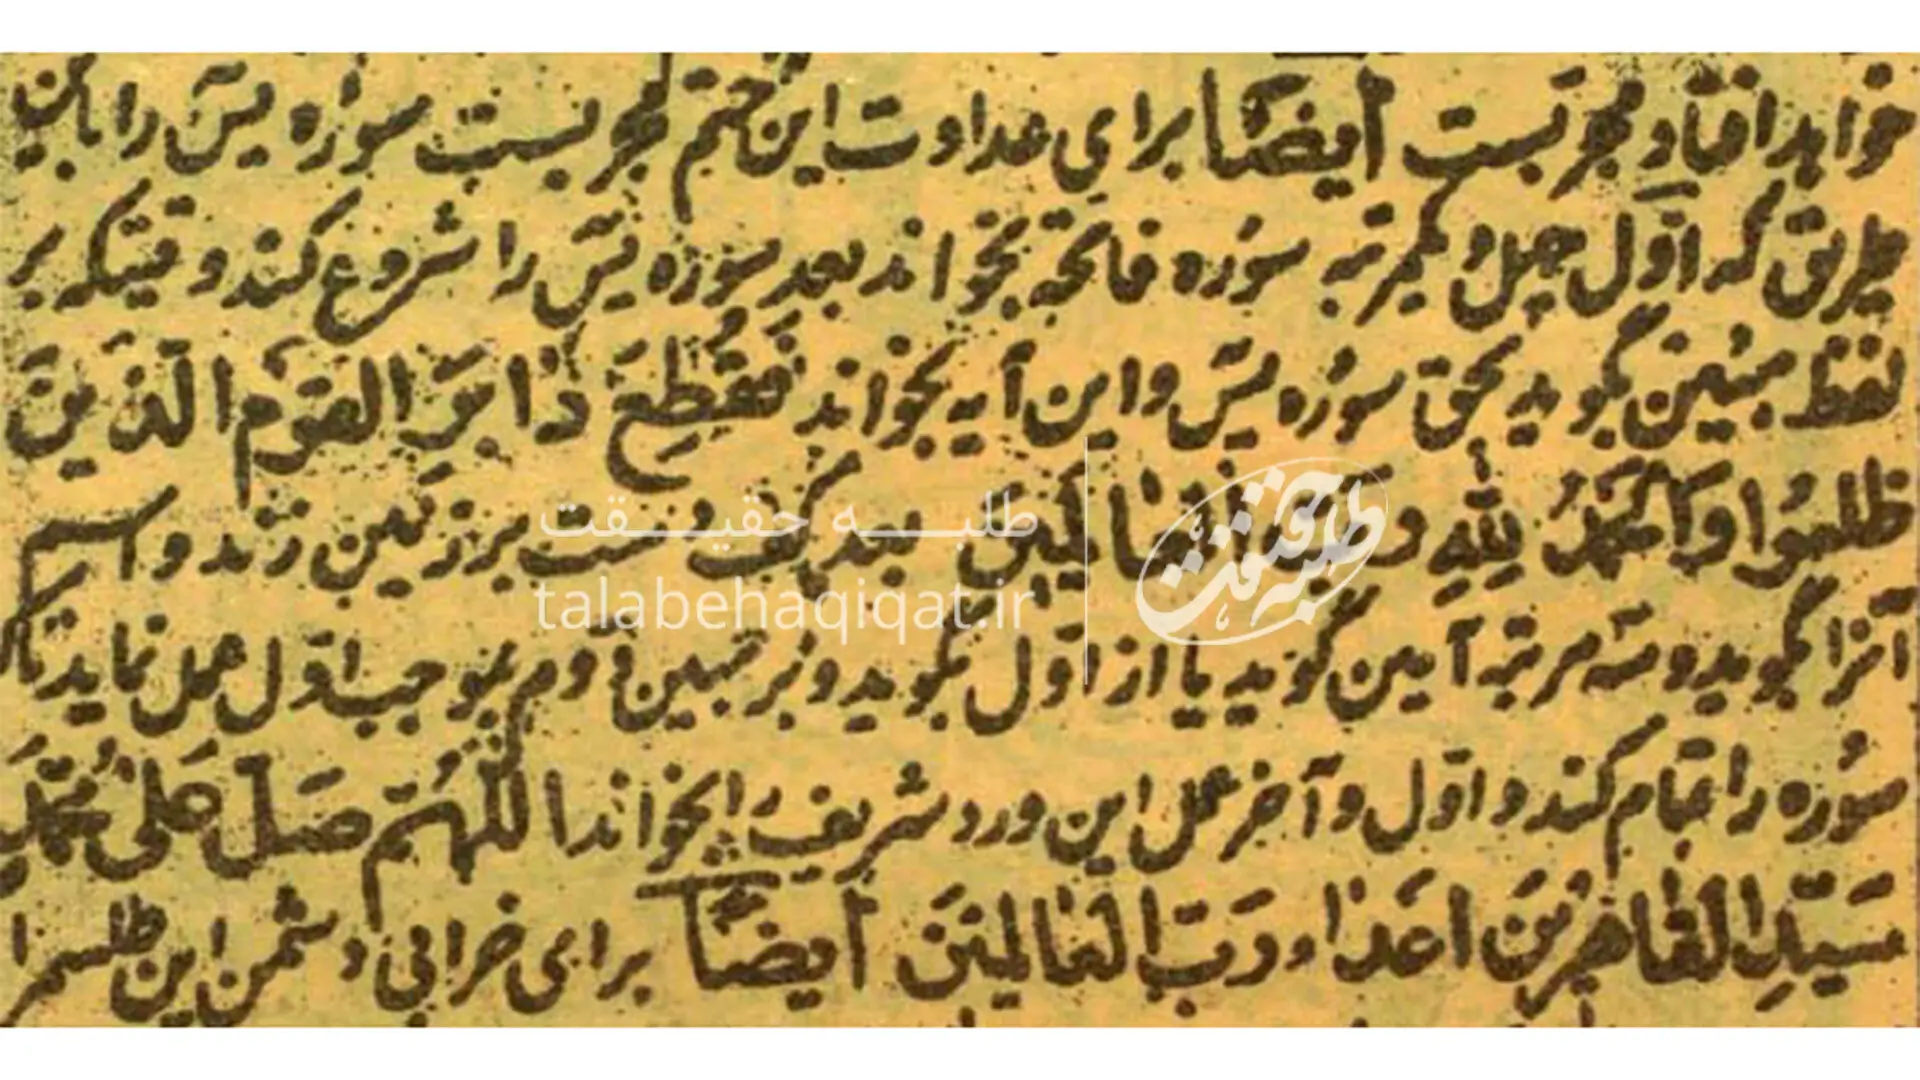 خواهد افتاد و مجربست ایضًا برای عداوت این ختم مجربست سوره یٰسٓ را باین
طریق که اوّل چهل و یکمرتبه سوره فاتحه بخواند بعد سوره یٰسٓ را شروع کند وقتیکه بر
لفظ مبین بگوید بحق سوره یٰسٓ و این آیه بخواند فَقُطِعَ دَابِرُ القَوْمِ الَّذِیْنَ
ظَلَمُوْا وَالْحَمْدُ لِلّٰهِ رَبِّ الْعَالَمِیْنَ بعد کف دست بر زمین زند و اسم
آنرا بگوید و سه مرتبه آمین گوید یا از اول بگوید و بر مبین دوم بموجب اول عمل نماید تا که
سوره را تمام کند و اول و آخر عمل این ورد شریف را بخواند اَللّٰهُمَّ صَلِّ عَلٰی مُحَمَّدٍ
سَیِّدِ القَاهِرِیْنَ اَعْدَاء رَبِّ الْعَالَمِیْنَ ایضًا برای خرابی دشمن این طلسم را
طلبه حقیقت
talabehaqiqat.ir